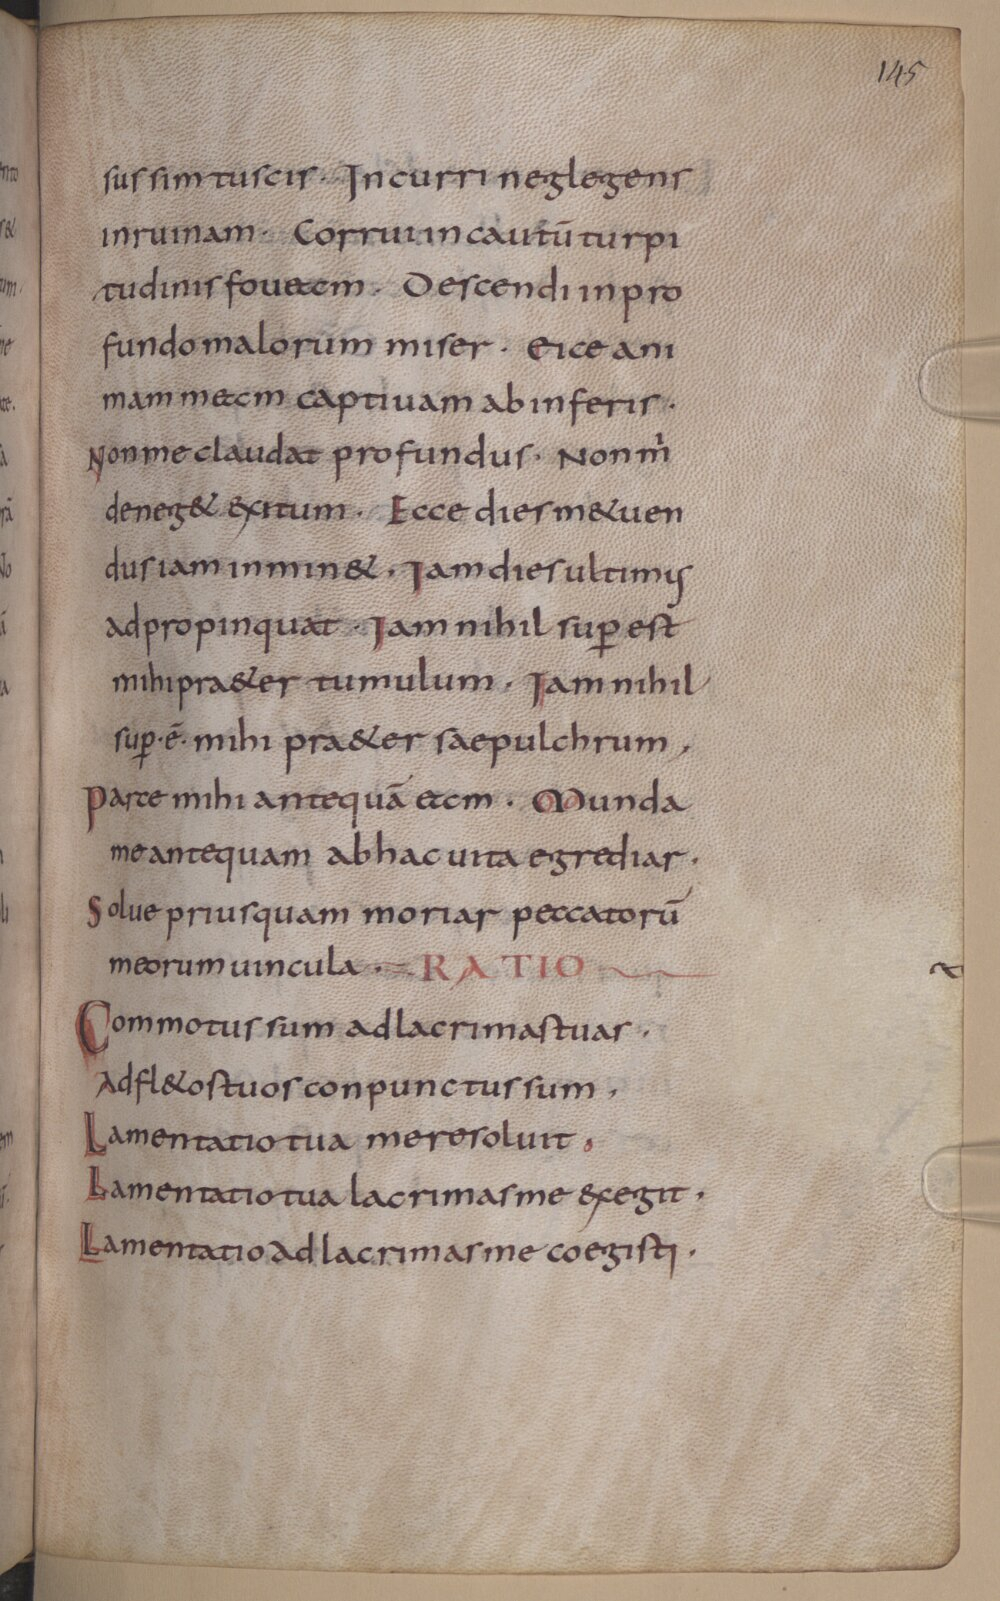 145
sus sim tu scis · In curri neglegens
in ruinam · Corrui in cautū turpi
tudinis foueam · Descendi in pro
fundo malorum miser · Eice ani
mam meam captiuam ab inferis ·
Non me claudat profundus · Non m̉
deneg& exitum · Ecce dies m&uen
dus iam inmin& · Iam dies ultimus
adpropinquat · Iam nihil sup̄ est
mihi pra&er tumulum · Iam nihil
sup̄ · ē · mihi pra&er saepulchrum ,
Parce mihi antequā eam · Munda
me antequam ab hac uita egrediar ·
Solue priusquam moriar peccatorū
meorum uincula · RATIO
Commotus sum ad lacrimas tuas ·
Ad fl&os tuos conpunctus sum ,
Lamentatio tua me resoluit .
Lamentatio tua lacrimas me exegit ·
Lamentatio ad lacrimas me coegisti ·